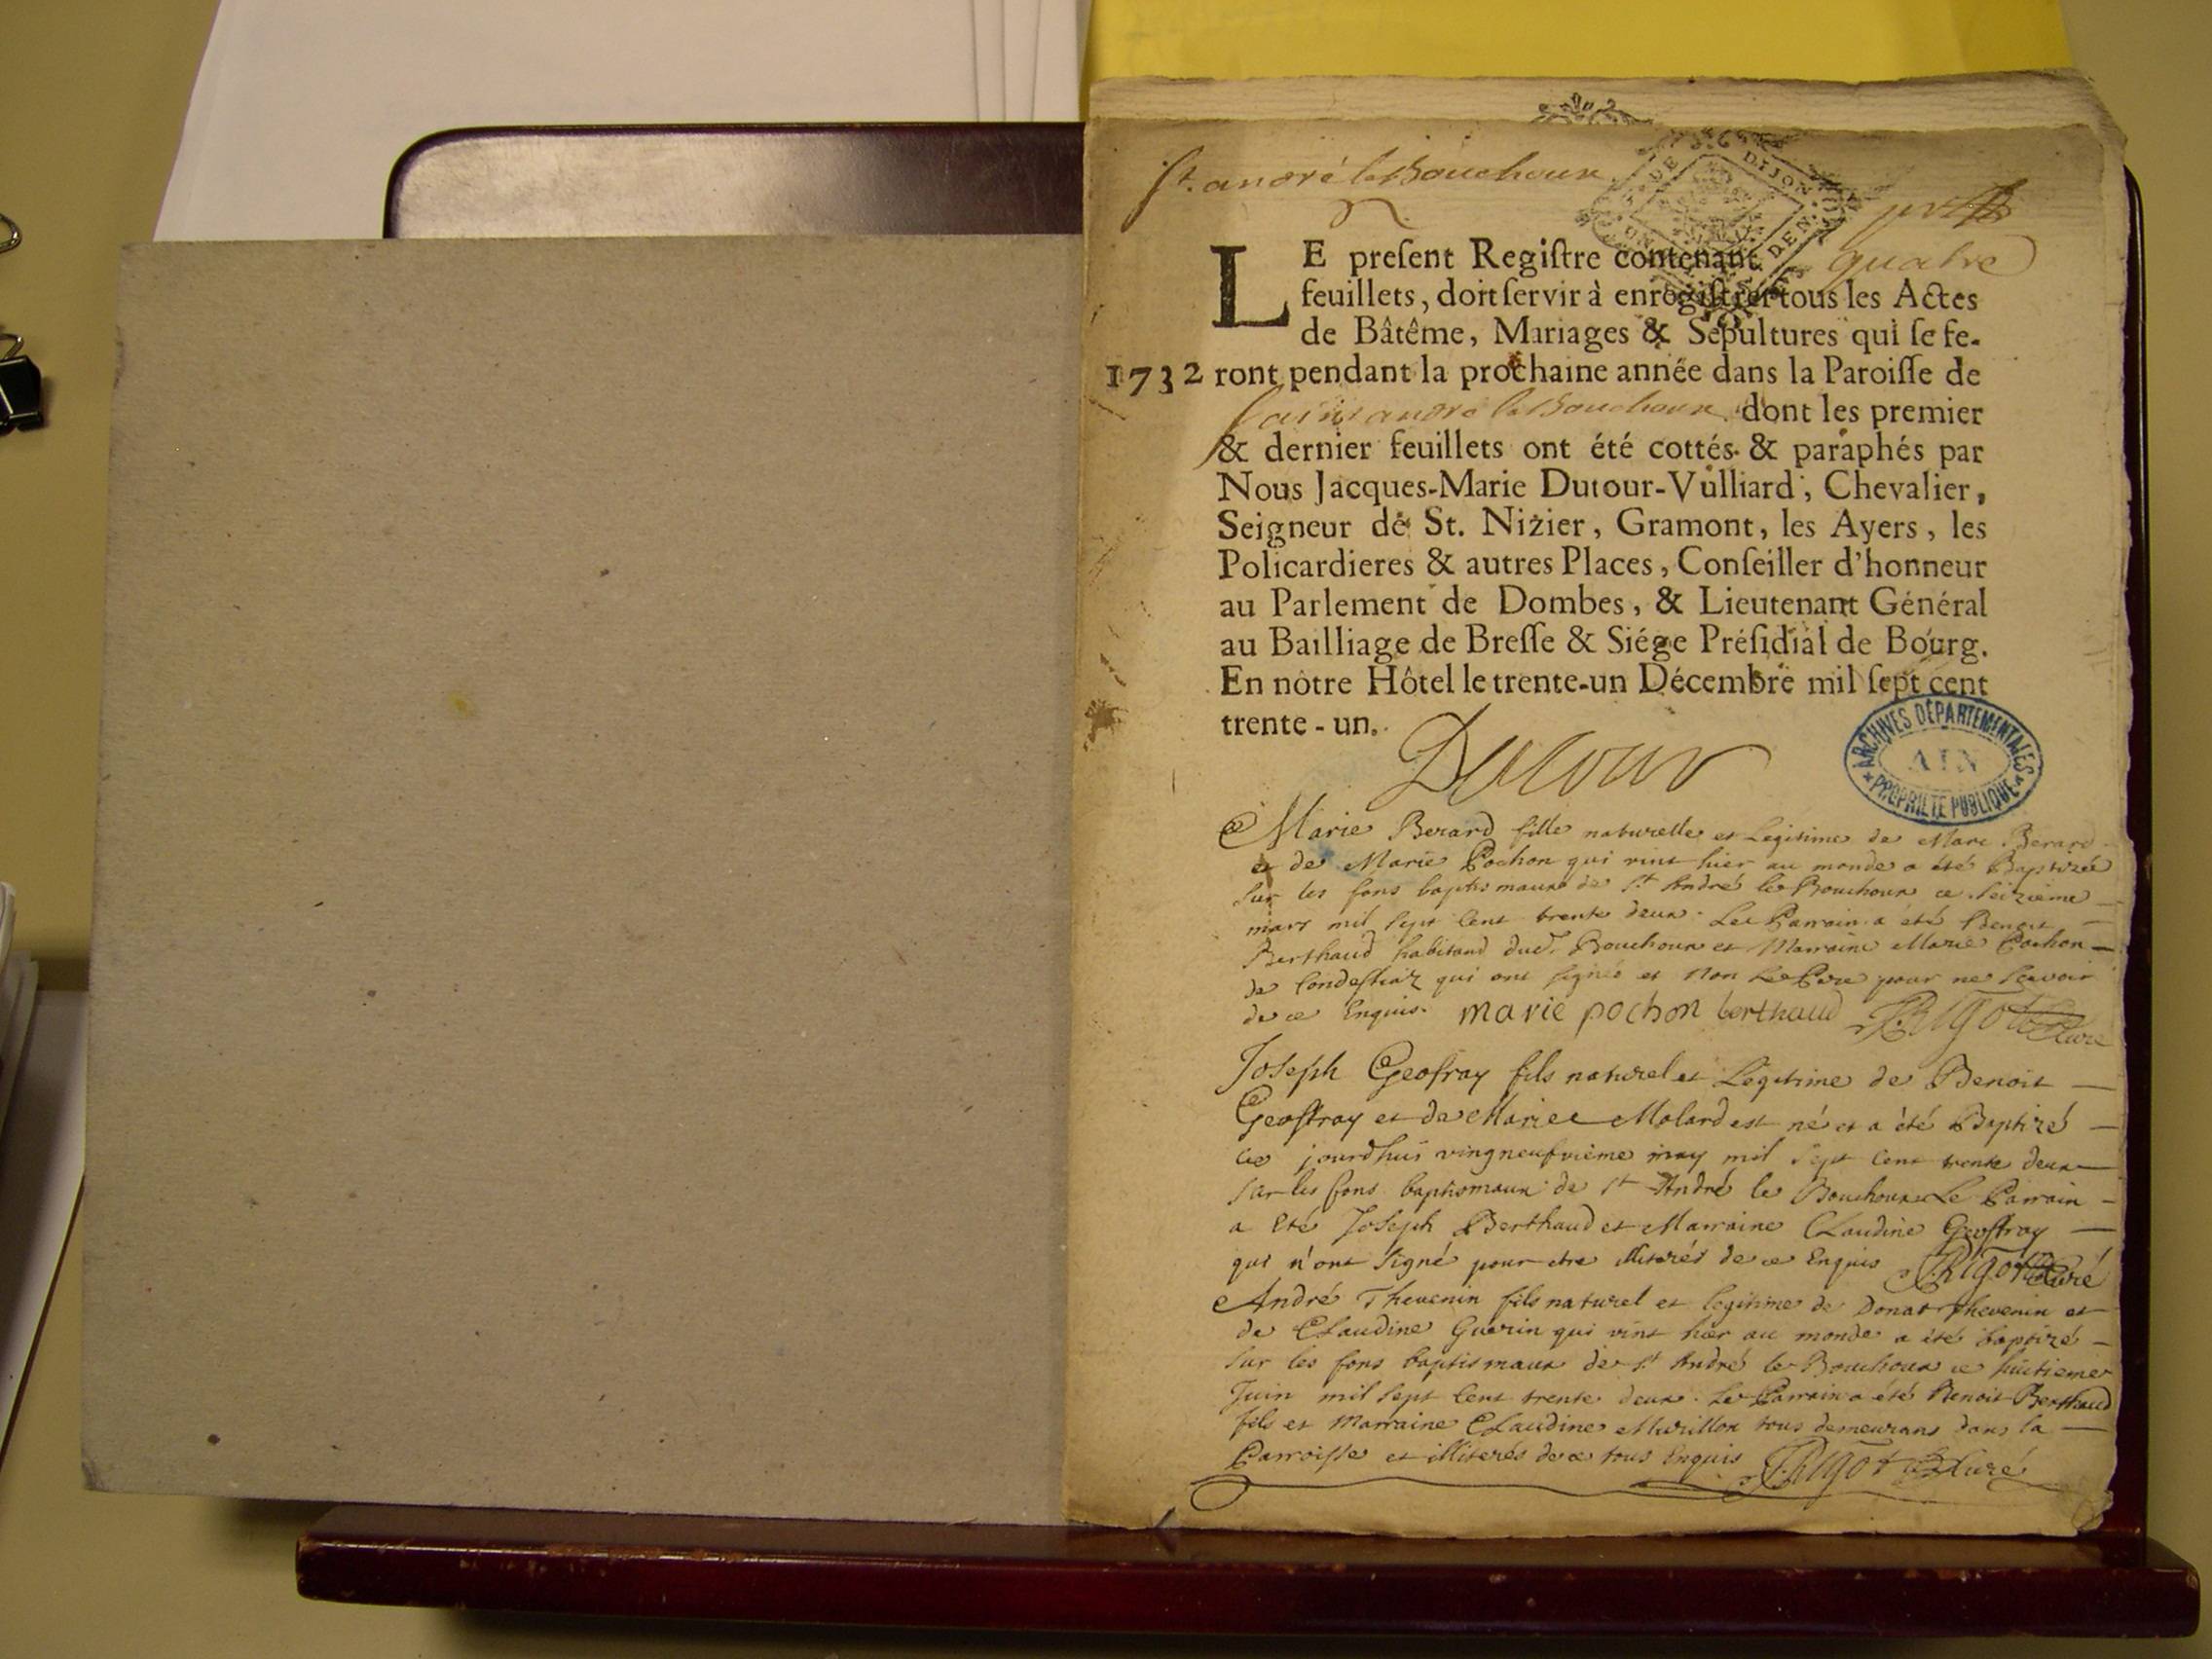 St. andré le Bouchoux
GEN. DE DIJON
quatre
LE present Registre contenant
feuillets, doit servir à enrégistrer tous les Actes
de Bâtême, Mariages & Sepultures qui se fe-
1732 ront pendant la prochaine année dans la Paroisse de
saint andré le Bouchoux dont les premier
& dernier feuillets ont été cottés & paraphés par
Nous Jacques-Marie Dutour-Vulliard, Chevalier,
Seigneur de St. Nizier, Gramont, les Ayers, les
Policardieres & autres Places, Conseiller d'honneur
au Parlement de Dombes, & Lieutenant Général
au Bailliage de Bresse & Siége Présidial de Bourg.
En nôtre Hôtel le trente-un Décembre mil sept cent
trente-un.
Dutour
ARCHIVES DÉPARTEMENTALES
AIN
PROPRIÉTÉ PUBLIQUE
Marie Berard fille naturelle et Legitime de Marc Berard
et de Marie Pochon qui vint hier au monde a été Baptizée
sur les fons baptismaux de St André le Bouchoux ce seizieme
mars mil sept cent trente deux. Le Parrain a été Benoit
Berthaud habitand dud. Bouchoux et Marraine Marie Pochon
de Condessiaz qui ont signés et Non Le Pere pour ne scavoir
de ce Enquis. marie pochon berthaud Rigot Curé
Joseph Geofray fils naturel et Légitime de Benoit
Geoffray et de Marie Molard est né et a été Baptizé
ce jourdhui vingneufvieme may mil sept cent trente deux
sur les fons baptismaux de St André le Bouchoux Le Parrain
a Eté Joseph Berthaud et Marraine Claudine Geoffray
qui n'ont signé pour etre illiterés de ce Enquis Rigot Curé
André Thevenin fils naturel et legitime de Donat Thevenin et
de Claudine Guerin qui vint hier au monde a été baptizé
sur les fons baptismaux de St André le Bouchoux ce huitieme
Juin mil sept cent trente deux. Le Parrain a été Benoit Berthaud
fils et Marraine Claudine Murillon tous demeurans dans la
Parroisse et illiterés de ce tous Enquis Rigot Curé